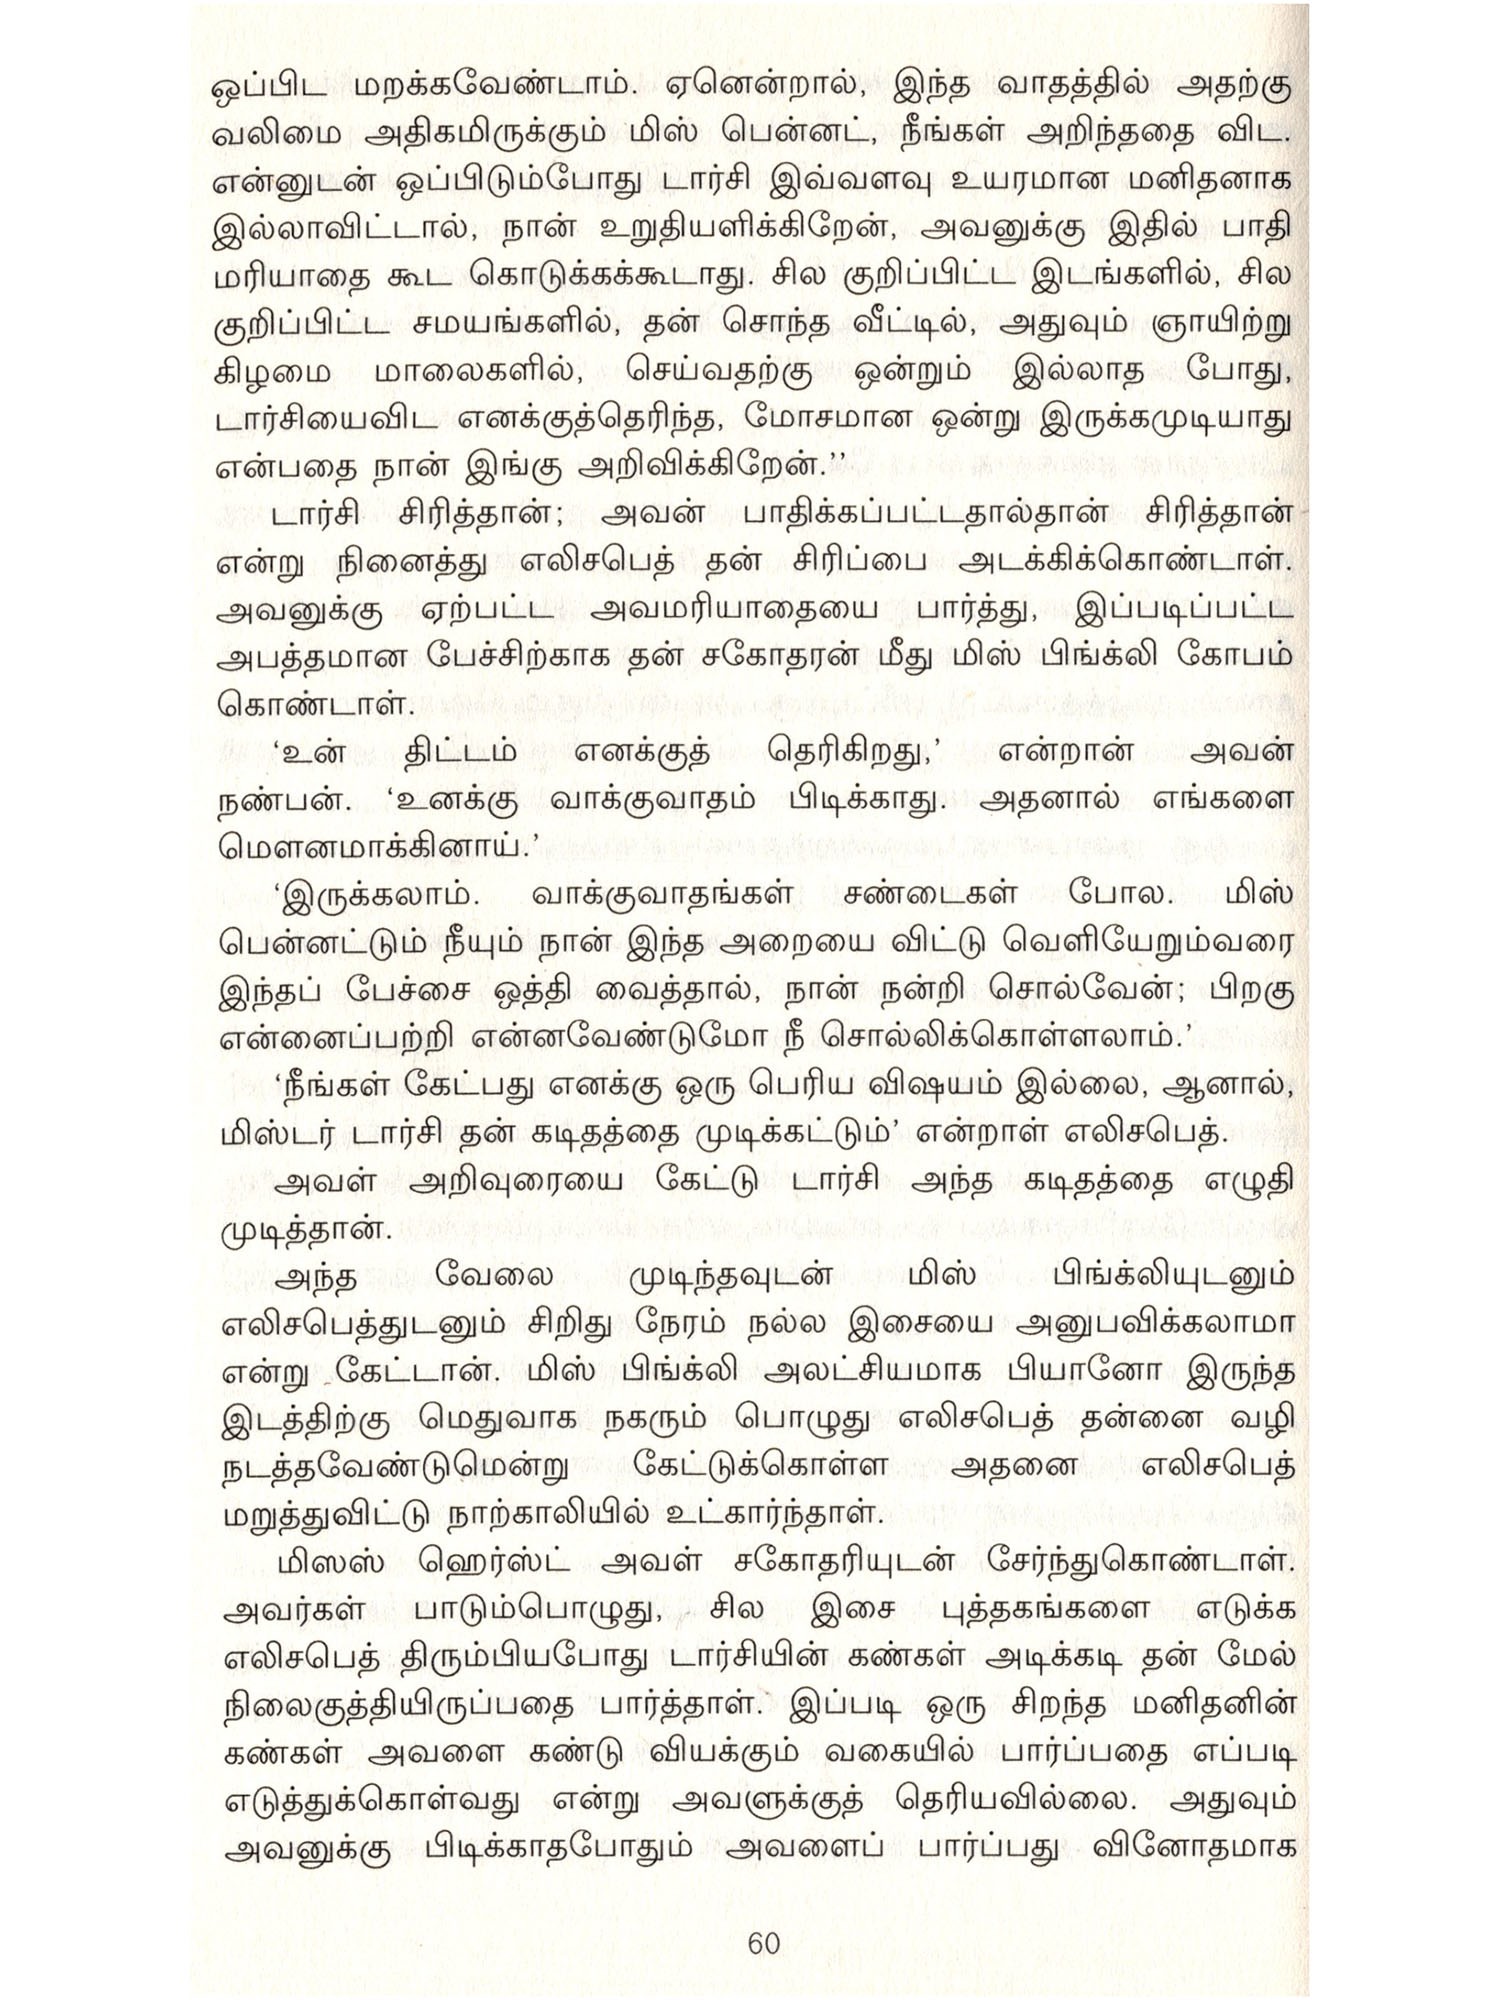 ஒப்பிட மறக்கவேண்டாம். ஏனென்றால், இந்த வாதத்தில் அதற்கு
வலிமை அதிகமிருக்கும் மிஸ் பென்னட், நீங்கள் அறிந்ததை விட.
என்னுடன் ஒப்பிடும்போது டார்சி இவ்வளவு உயரமான மனிதனாக
இல்லாவிட்டால், நான் உறுதியளிக்கிறேன், அவனுக்கு இதில் பாதி
மரியாதை கூட கொடுக்கக்கூடாது. சில குறிப்பிட்ட இடங்களில், சில
குறிப்பிட்ட சமயங்களில், தன் சொந்த வீட்டில், அதுவும் ஞாயிற்று
கிழமை மாலைகளில், செய்வதற்கு ஒன்றும் இல்லாத போது,
டார்சியைவிட எனக்குத்தெரிந்த, மோசமான ஒன்று இருக்கமுடியாது
என்பதை நான் இங்கு அறிவிக்கிறேன்.’’
டார்சி சிரித்தான்; அவன் பாதிக்கப்பட்டதால்தான் சிரித்தான்
என்று நினைத்து எலிசபெத் தன் சிரிப்பை அடக்கிக்கொண்டாள்.
அவனுக்கு ஏற்பட்ட அவமரியாதையை பார்த்து, இப்படிப்பட்ட
அபத்தமான பேச்சிற்காக தன் சகோதரன் மீது மிஸ் பிங்க்லி கோபம்
கொண்டாள்.
‘உன் திட்டம் எனக்குத் தெரிகிறது,’ என்றான் அவன்
நண்பன். ‘உனக்கு வாக்குவாதம் பிடிக்காது. அதனால் எங்களை
மௌனமாக்கினாய்.’
‘இருக்கலாம். வாக்குவாதங்கள் சண்டைகள் போல. மிஸ்
பென்னட்டும் நீயும் நான் இந்த அறையை விட்டு வெளியேறும்வரை
இந்தப் பேச்சை ஒத்தி வைத்தால், நான் நன்றி சொல்வேன்; பிறகு
என்னைப்பற்றி என்னவேண்டுமோ நீ சொல்லிக்கொள்ளலாம்.’
‘நீங்கள் கேட்பது எனக்கு ஒரு பெரிய விஷயம் இல்லை, ஆனால்,
மிஸ்டர் டார்சி தன் கடிதத்தை முடிக்கட்டும்’ என்றாள் எலிசபெத்.
அவள் அறிவுரையை கேட்டு டார்சி அந்த கடிதத்தை எழுதி
முடித்தான்.
அந்த வேலை முடிந்தவுடன் மிஸ் பிங்க்லியுடனும்
எலிசபெத்துடனும் சிறிது நேரம் நல்ல இசையை அனுபவிக்கலாமா
என்று கேட்டான். மிஸ் பிங்க்லி அலட்சியமாக பியானோ இருந்த
இடத்திற்கு மெதுவாக நகரும் பொழுது எலிசபெத் தன்னை வழி
நடத்தவேண்டுமென்று கேட்டுக்கொள்ள அதனை எலிசபெத்
மறுத்துவிட்டு நாற்காலியில் உட்கார்ந்தாள்.
மிஸஸ் ஹெர்ஸ்ட் அவள் சகோதரியுடன் சேர்ந்துகொண்டாள்.
அவர்கள் பாடும்பொழுது, சில இசை புத்தகங்களை எடுக்க
எலிசபெத் திரும்பியபோது டார்சியின் கண்கள் அடிக்கடி தன் மேல்
நிலைகுத்தியிருப்பதை பார்த்தாள். இப்படி ஒரு சிறந்த மனிதனின்
கண்கள் அவளை கண்டு வியக்கும் வகையில் பார்ப்பதை எப்படி
எடுத்துக்கொள்வது என்று அவளுக்குத் தெரியவில்லை. அதுவும்
அவனுக்கு பிடிக்காதபோதும் அவளைப் பார்ப்பது வினோதமாக
60